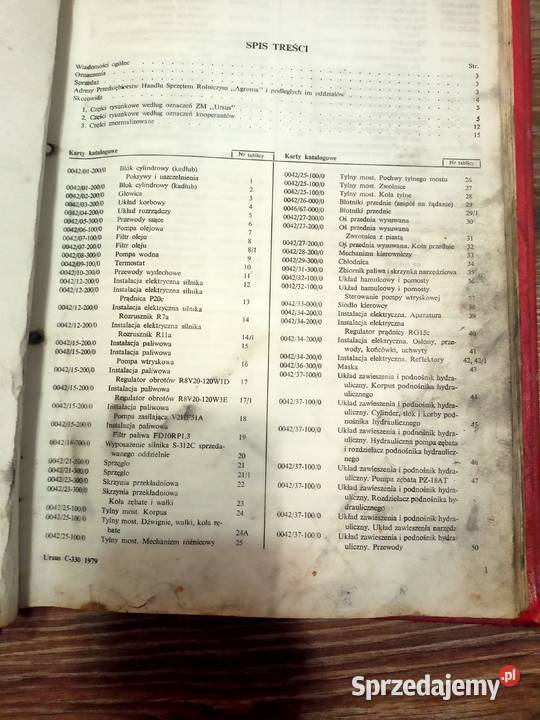 SPIS TREŚCI
Str.
Wiadomości ogólne 3
Oznaczenia 3
Sprzedaż 3
Adresy Przedsiębiorstw Handlu Sprzętem Rolniczym „Agroma" i podległych im oddziałów 4
Skorowidz 5
1. Części rysunkowe według oznaczeń ZM „Ursus" 5
2. Części rysunkowe według oznaczeń kooperantów 12
3. Części znormalizowane 15
Karty katalogowe Nr tablicy
0042/01-200/0 Blok cylindrowy (kadłub)
Pokrywy i uszczelnienia 1
0042/01-200/0 Blok cylindrowy (kadłub) 2
0042/02-200/0 Głowica 3
0042/03-200/0 Układ korbowy 4
0042/04-200/0 Układ rozrządczy 5
0042/05-300/0 Przewody ssące 6
0042/06-100/0 Pompa olejowa 7
0042/07-100/0 Filtr oleju 8
0042/07-200/0 Filtr oleju 8/1
0042/08-300/0 Pompa wodna 9
0042/09-100/0 Termostat 10
0042/10-200/0 Przewody wydechowe 11
0042/12-200/0 Instalacja elektryczna silnika 12
0042/12-200/0 Instalacja elektryczna silnika
Prądnica P20c 13
0042/12-200/0 Instalacja elektryczna silnika
Rozrusznik R7a 14
0042/12-200/0 Instalacja elektryczna silnika
Rozrusznik R11a 14/1
0042/15-200/0 Instalacja paliwowa 15
0048/15-200/0 Instalacja paliwowa
Pompa wtryskowa 16
0042/15-200/0 Instalacja paliwowa
Regulator obrotów R8V20-120W1D 17
0042/15-200/0 Instalacja paliwowa
Regulator obrotów R8V20-120W3E 17/1
0042/15-200/0 Instalacja paliwowa
Pompa zasilająca V2HF51A 18
0042/15-200/0 Instalacja paliwowa
Filtr paliwa FD10RP1.3 19
0042/18-200/0 Wyposażenie silnika S-312C sprzeda-
wanego oddzielnie 20
0042/21-200/0 Sprzęgło 21
0042/21-300/0 Sprzęgło 21/1
0042/23-300/0 Skrzynia przekładniowa 22
0042/23-300/0 Skrzynia przekładniowa
Koła zębate i wałki 23
0042/25-100/0 Tylny most. Korpus 24
0042/25-100/0 Tylny most. Dźwignie, wałki, koła zę-
bate 24A
0042/25-100/0 Tylny most. Mechanizm różnicowy 25
Karty katalogowe Nr tablicy
0042/25-100/0 Tylny most. Pochwy tylnego mostu 26
0042/25-100/0 Tylny most. Zwolnice 27
0042/25-100/0 Tylny most. Koła tylne 28
0042/26-000/0 Błotniki przednie (zespół na żądanie) 29
0046/67-000/0 Błotniki przednie 29/1
0042/27-200/0 Oś przednia wysuwana 30
0042/27-200/0 Oś przednia wysuwana
Zwrotnica z piastą 31
0042/27-200/0 Oś przednia wysuwana. Koła przednie 32
0042/28-200/0 Mechanizm kierowniczy 33
0042/29-300/0 Chłodnica 34
0042/31-300/0 Zbiornik paliwa i skrzynka narzędziowa 35
0042/32-100/0 Układ hamulcowy i pomosty 36
0042/32-100/0 Układ hamulcowy i pomosty.
Sterowanie pompy wtryskowej 37
0042/33-000/0 Siodło kierowcy 38
0042/34-200/0 Instalacja elektryczna. Aparatura 39
0042/34-200/0 Instalacja elektryczna
Regulator prądnicy RG15c 40
0042/34-200/0 Instalacja elektryczna. Osłony, przewo-
dy, końcówki, uchwyty 41
0042/34-200/0 Instalacja elektryczna. Reflektory 42, 42/1
0042/36-300/0 Maska 43
0042/37-100/0 Układ zawieszenia i podnośnik hydra-
uliczny. Korpus podnośnika hydra-
ulicznego 44
0042/37-100/0 Układ zawieszenia i podnośnik hydra-
uliczny. Cylinder, tłok i korby pod-
nośnika hydraulicznego 45
0042/37-100/0 Układ zawieszenia i podnośnik hydra-
uliczny. Hydrauliczna pompa zębata
i rozdzielacz podnośnika hydraulicz-
nego 46
0042/37-100/0 Układ zawieszenia i podnośnik hydra-
uliczny. Pompa zębata PZ-18AT 47
0042/37-100/0 Układ zawieszenia i podnośnik hydra-
uliczny. Rozdzielacz podnośnika hy-
draulicznego
0042/37-100/0 Układ zawieszenia i podnośnik hydra-
uliczny. Układ zawieszenia narzędzi
0042/37-100/0 Układ zawieszenia i podnośnik hydra-
uliczny. Przewody 50
Ursus C-330 1979
1
Sprzedajemy.pl